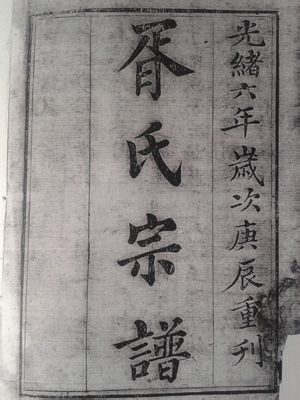 光緒六年歲次庚辰重刊
胥氏宗譜